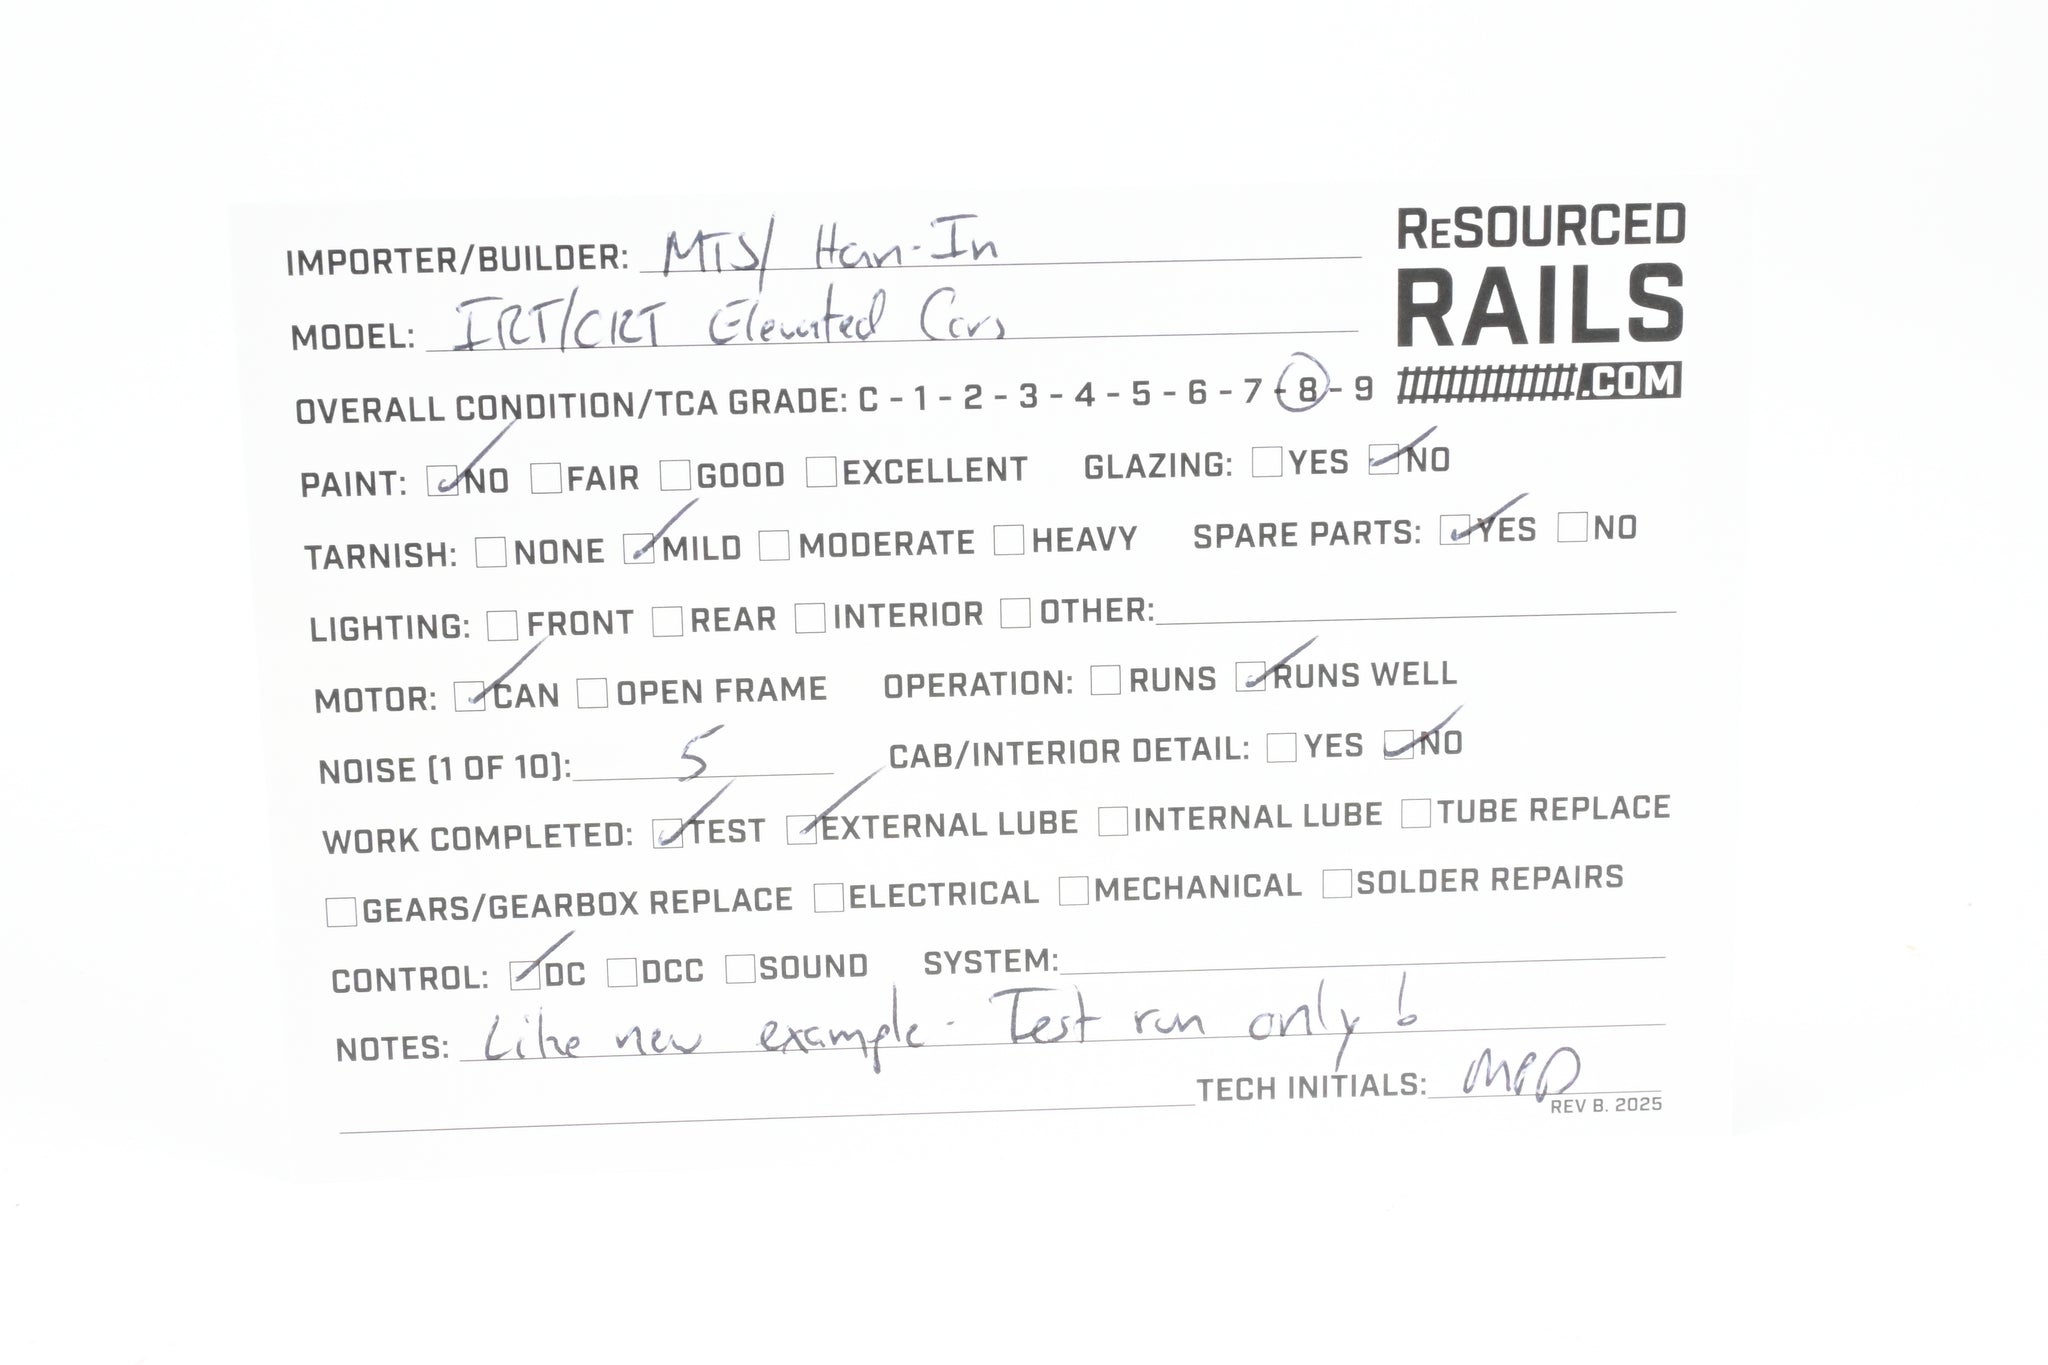 RESOURCED
RAILS
.COM
IMPORTER/BUILDER: MTS/ Han-In
MODEL: IRT/CRT Elevated Cars
OVERALL CONDITION/TCA GRADE: C - 1 - 2 - 3 - 4 - 5 - 6 - 7 - 8 - 9
PAINT: NO FAIR GOOD EXCELLENT GLAZING: YES NO
TARNISH: NONE MILD MODERATE HEAVY SPARE PARTS: YES NO
LIGHTING: FRONT REAR INTERIOR OTHER:
MOTOR: CAN OPEN FRAME OPERATION: RUNS RUNS WELL
NOISE (1 OF 10): 5 CAB/INTERIOR DETAIL: YES NO
WORK COMPLETED: TEST EXTERNAL LUBE INTERNAL LUBE TUBE REPLACE
GEARS/GEARBOX REPLACE ELECTRICAL MECHANICAL SOLDER REPAIRS
CONTROL: DC DCC SOUND SYSTEM:
NOTES: Like new example. Test run only!
TECH INITIALS: MPD
REV B. 2025